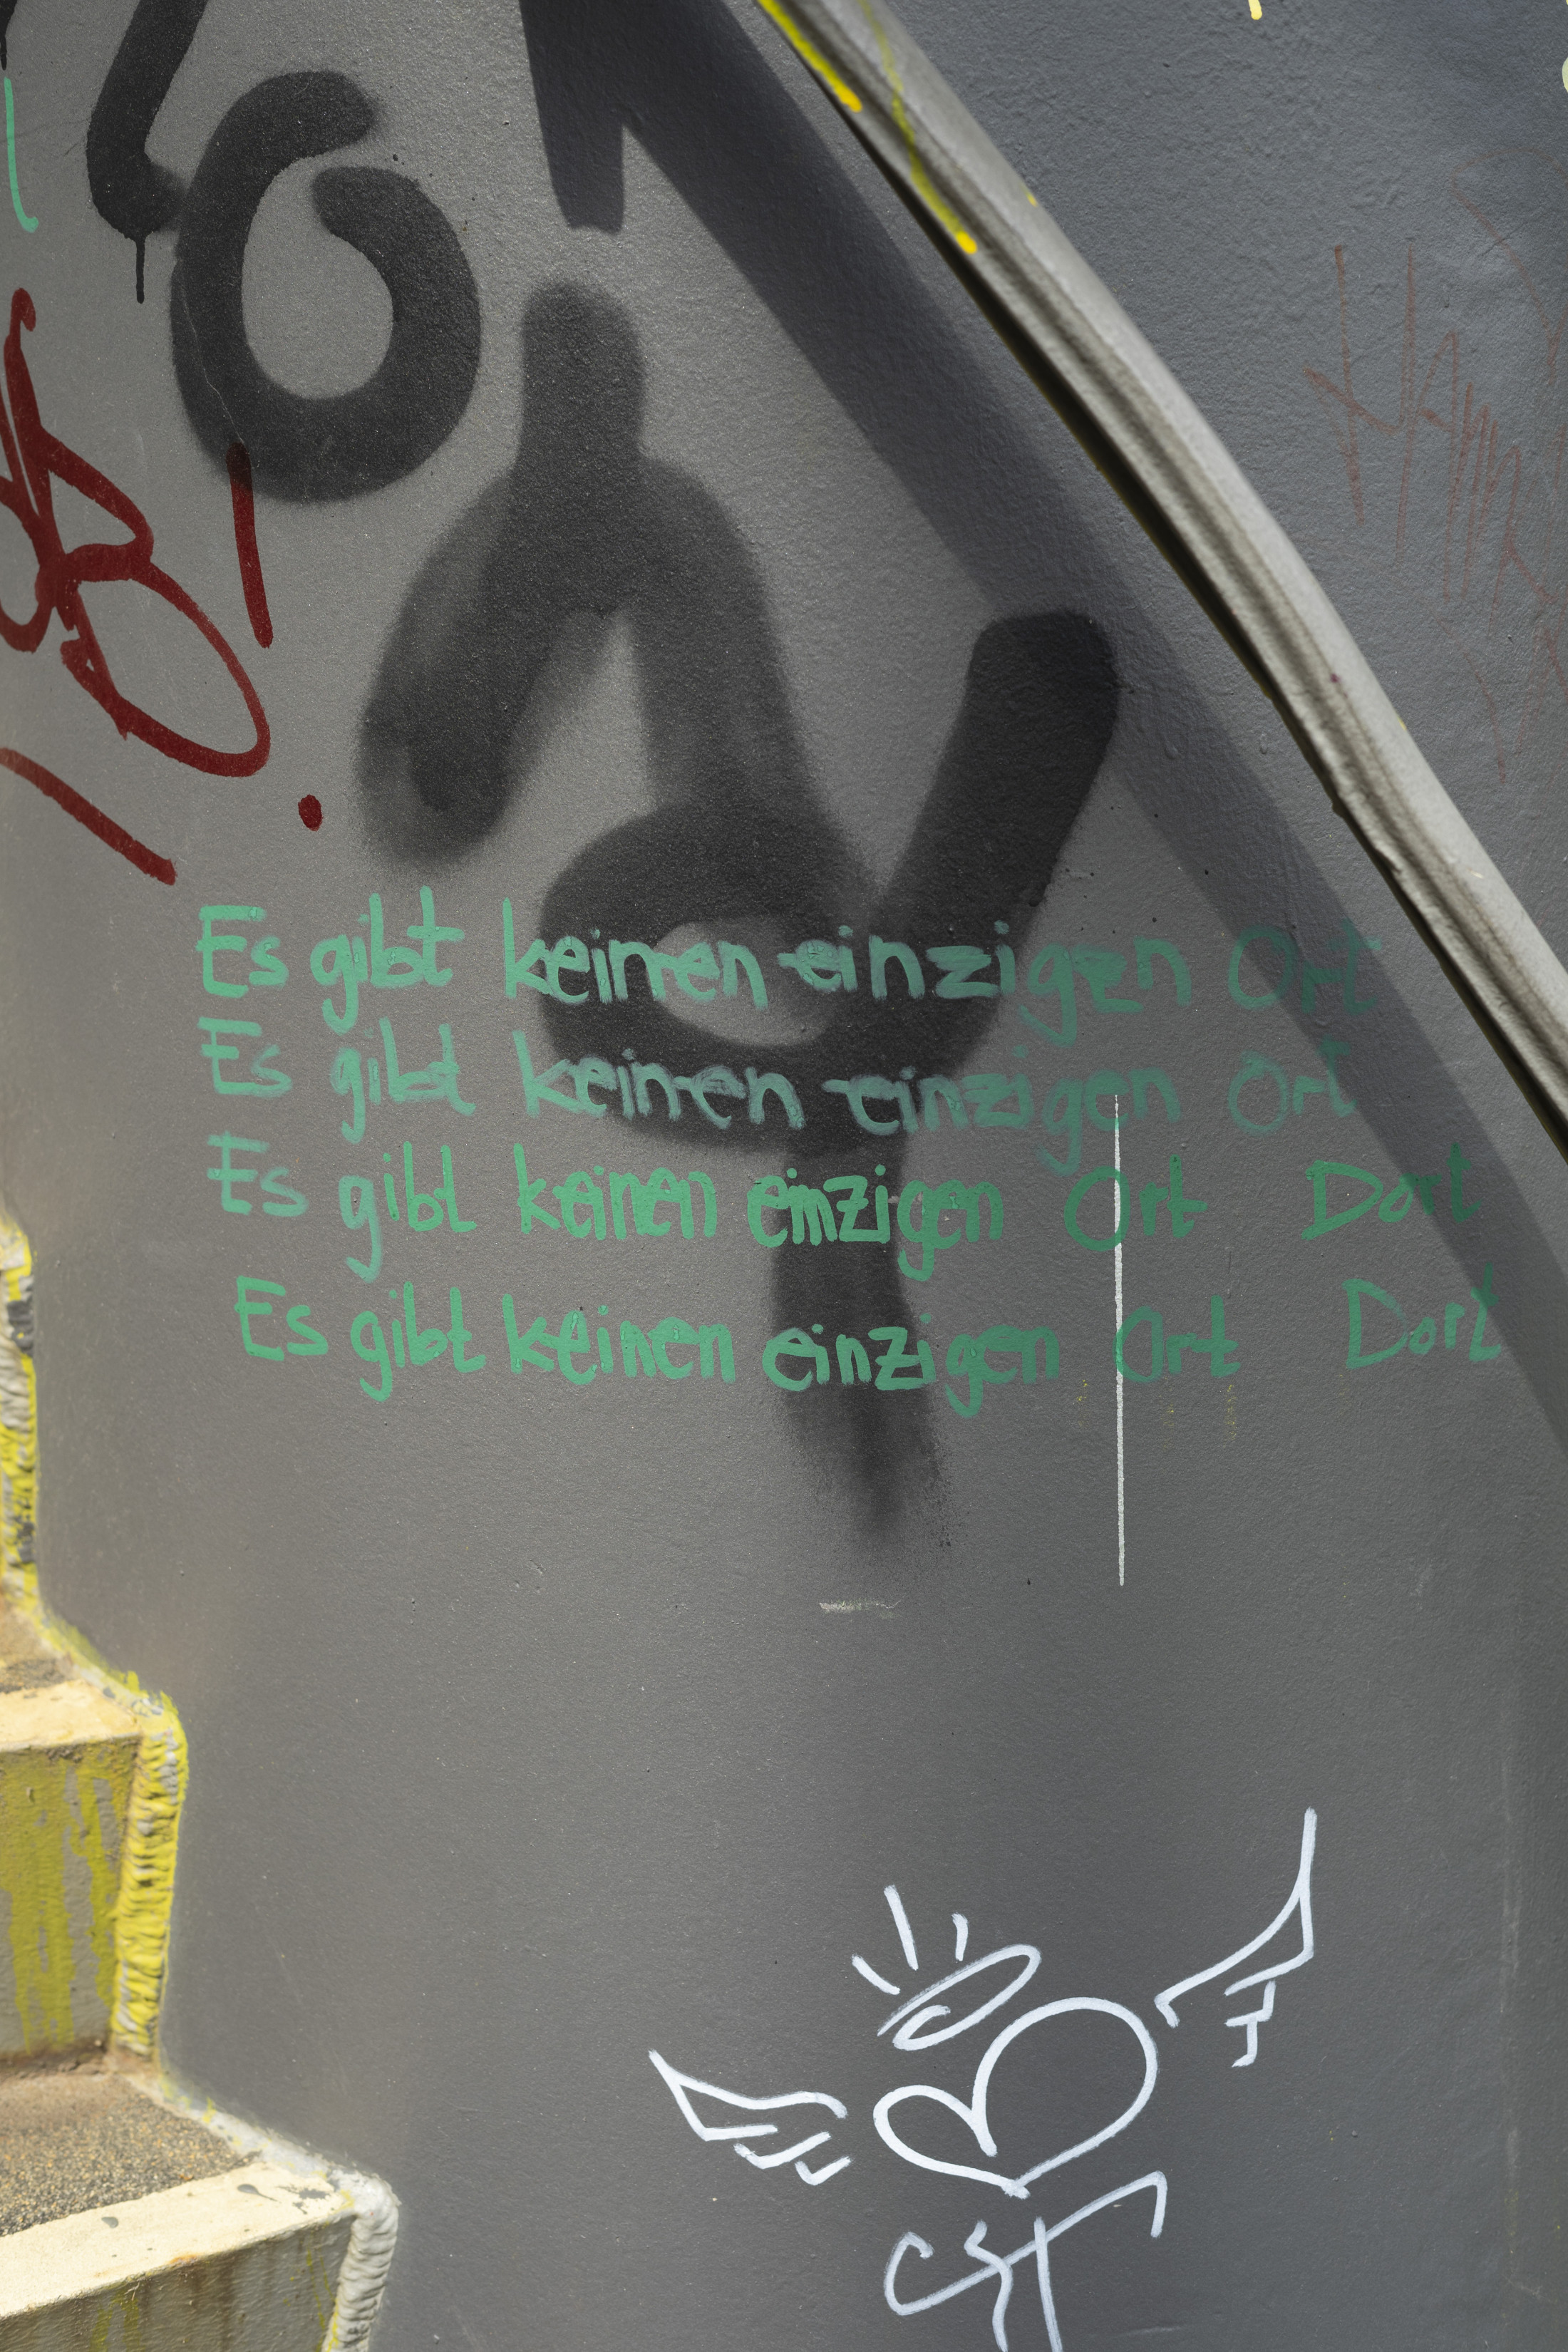 Es gibt keinen einzigen Ort
Es gibt keinen einzigen Ort
Es gibt keinen einzigen Ort Dort
Es gibt keinen einzigen Ort Dort
CST